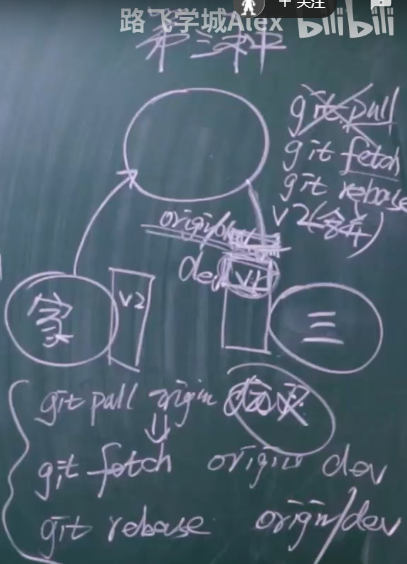 路飞学城Alex bilibili
+ 关注
第三种
git pull
git fetch
git rebase
v2(合并)
origin/dev
dev
v1
家
v2
三
git pull origin dev
git fetch origin dev
git rebase origin/dev